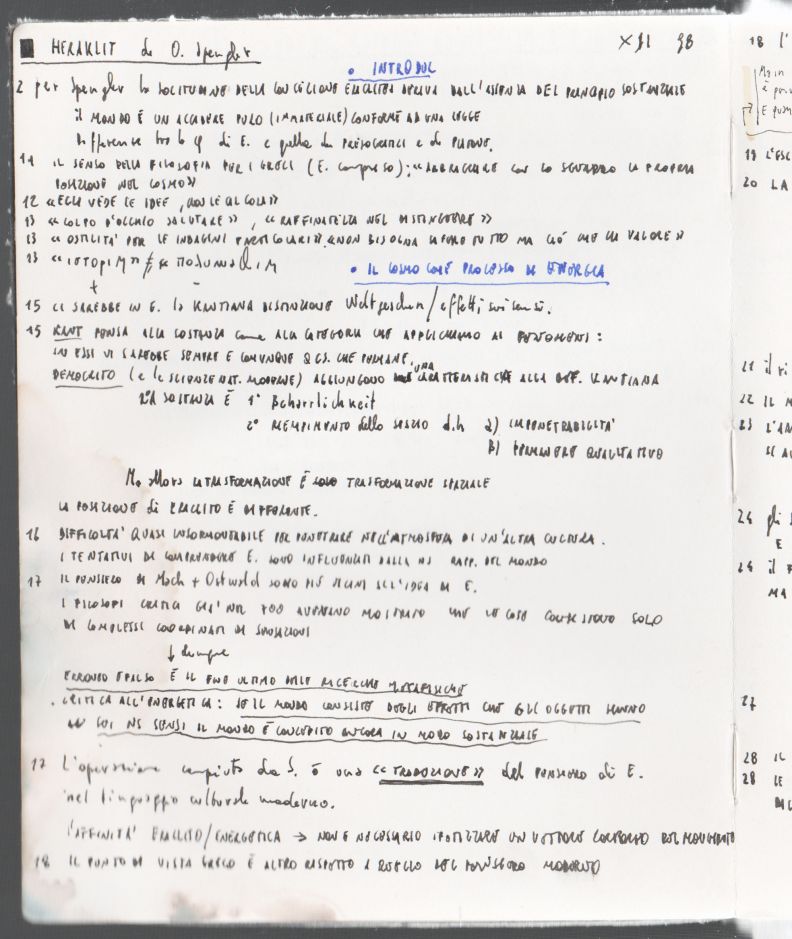 HERAKLIT de O. Spengler XII 98
• INTRODUZ
2 per Spengler la SOLITUDINE DELLA CONCEZIONE ERACLITEA DERIVA DALL'ASSENZA DEL PRINCIPIO SOSTANZIALE
il MONDO È UN ACCADERE PURO (IMMATERIALE) CONFORME AD UNA LEGGE
Differenze tra la φ di E. e quella dei PRESOCRATICI e di PLATONE.
11 IL SENSO DELLA FILOSOFIA PER I GRECI (E. compreso): «ABBRACCIARE con lo SGUARDO LA PROPRIA
POSIZIONE NEL COSMO»
12 «EGLI VEDE LE IDEE, NON LE CALCOLA»
13 «COLPO D'OCCHIO SALUTARE», «RAFFINATEZZA NEL DISTINGUERE»
13 «OSTILITÀ PER LE INDAGINI PARTICOLARI». «NON BISOGNA SAPERE TUTTO MA CIÒ CHE HA VALORE»
13
+ -
• IL COSMO COME PROCESSO DI ENERGIA
15 CI SAREBBE IN E. la KANTIANA DISTINZIONE Weltgeschehen/effetti sui sensi.
15 KANT PENSA ALLA SOSTANZA come ALLA CATEGORIA CHE APPLICHIAMO AI FENOMENI:
IN ESSI VI SAREBBE SEMPRE E COMUNQUE QCS. CHE PERMANE.
DEMOCRITO (e le SCIENZE NAT. MODERNE) AGGIUNGONO UNA CARATTERISTICA ALLA DEF. KANTIANA
LA SOSTANZA È 1° Beharrlichkeit
2° RIEMPIMENTO dello SPAZIO d.h. a) IMPENETRABILITÀ
B) PERMANERE QUALITATIVO
Ma allora LA TRASFORMAZIONE È SOLO TRASFORMAZIONE SPAZIALE
LA POSIZIONE di ERACLITO È DIFFERENTE.
16 DIFFICOLTÀ QUASI INSORMONTABILE PER PENETRARE NELL'ATMOSFERA DI UN'ALTRA CULTURA.
I TENTATIVI DI COMPRENDERE E. SONO INFLUENZATI DALLA NS RAPP. DEL MONDO
17 IL PENSIERO DI Mach + Ostwald SONO PIÙ VICINI ALL'IDEA DI E.
I FILOSOFI CRITICI GIÀ NEL 700 AVEVANO MOSTRATO CHE LE COSE CONSISTONO SOLO
DI COMPLESSI COORDINATI DI SENSAZIONI
↓ dunque
ERRONEO E FALSO È IL FINE ULTIMO DELLE RICERCHE METAFISICHE
. CRITICA ALL'ENERGETICA: SE IL MONDO CONSISTE DEGLI EFFETTI CHE GLI OGGETTI HANNO
SUI NS SENSI IL MONDO È CONCEPITO ANCORA IN MODO SOSTANZIALE
17 L'operazione compiuta da S. è una «TRADUZIONE» del PENSIERO di E.
nel linguaggio culturale moderno.
L'AFFINITÀ ERACLITO/ENERGETICA → NON È NECESSARIO IPOTIZZARE UN VETTORE CORPOREO DEL MOVIMENTO
18 IL PUNTO DI VISTA GRECO È ALTRO RISPETTO A QUELLO DEL PENSIERO MODERNO
18 l'
19 L'ESC
20 LA
21 il ri
22 IL M
23 L'AR
24 gli
E
24 il F
MA
27
28 IL
28 LE